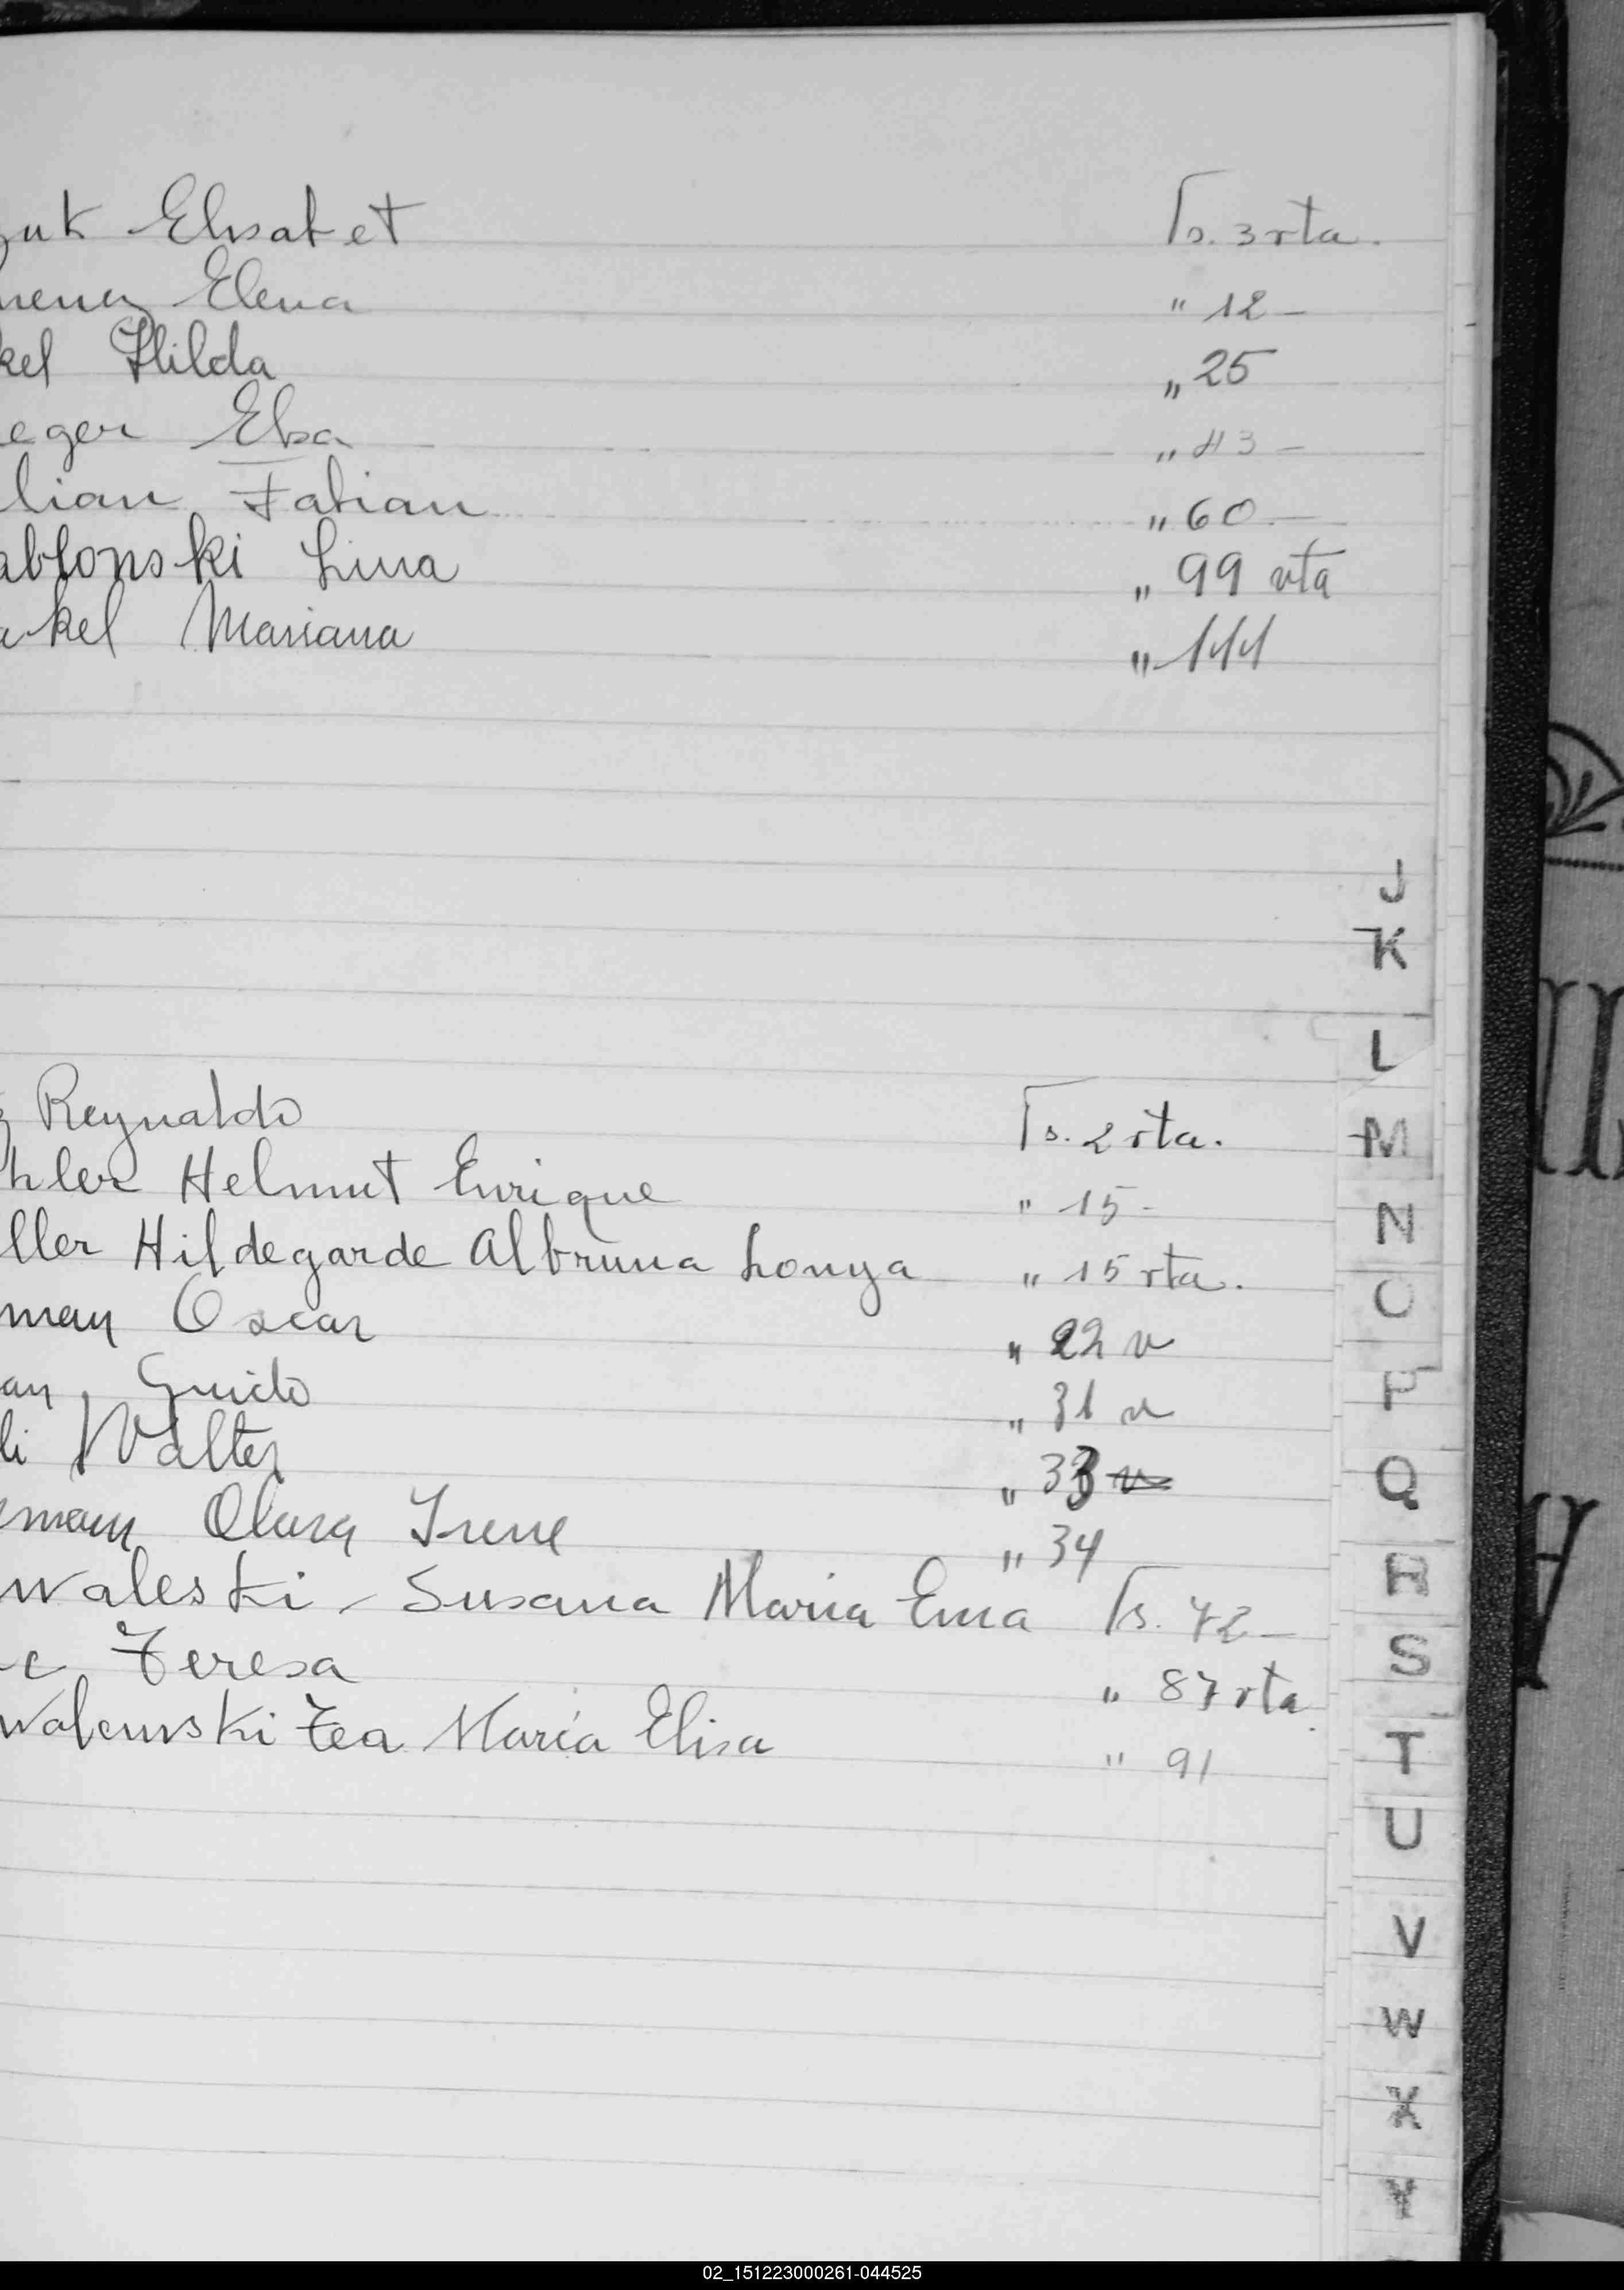 zuk Elisabet Fs. 3 vta.
menez Elena " 12 -
kel Hilda " 25
eger Elsa " 43 -
lian Fabian " 60 -
ablonski Lina " 99 vta
akel Mariana " 111
J
K
L
z Reynaldo Fs. 2 vta.
M
hler Helmut Enrique " 15 -
N
ller Hildegarde Albruna Lonya " 15 vta.
O
man Oscar " 22 v
an, Guido " 31 v
P
li Walter " 33 v
Q
man Clara Irene " 34
R
waleski - Susana Maria Ema Fs. 72 -
S
c Teresa " 87 vta.
walewski Tea María Elisa " 91
T
U
V
W
X
Y
02_151223000261-044525